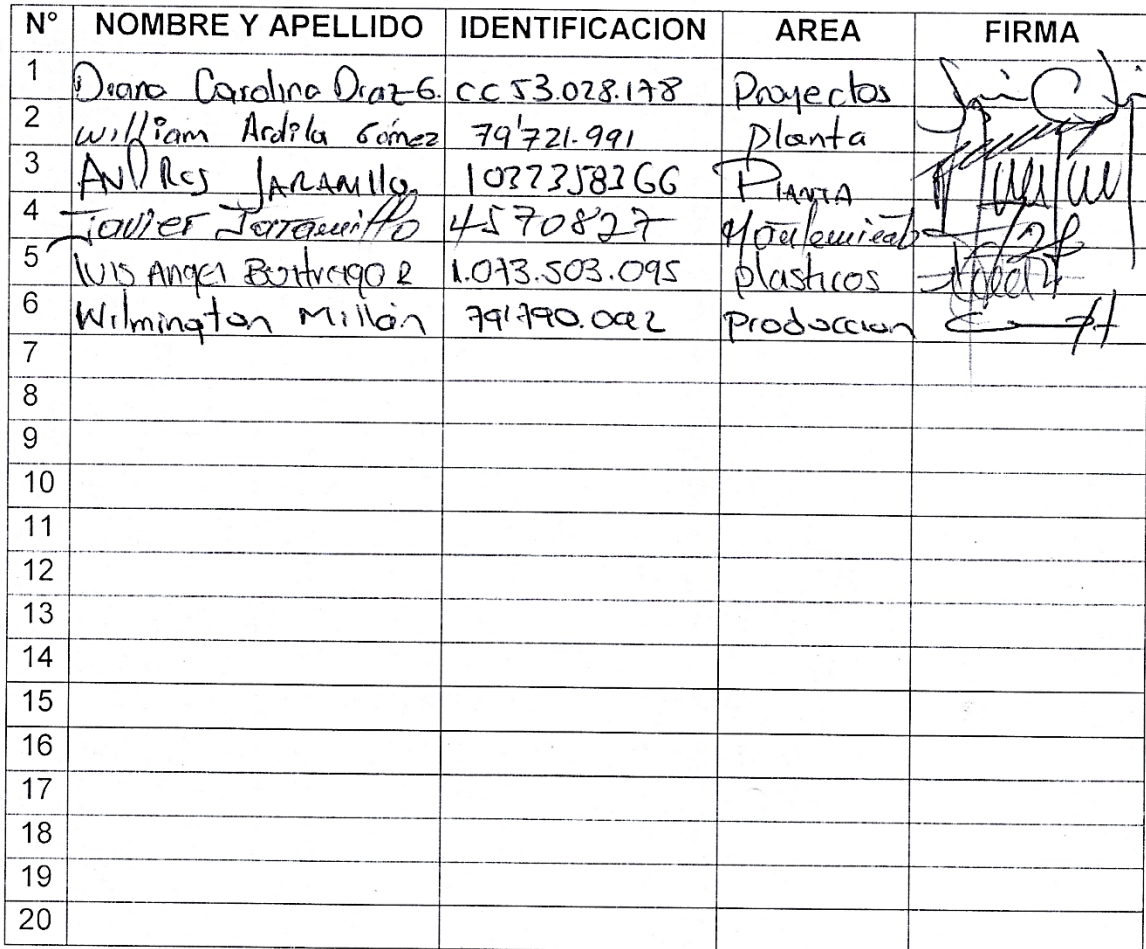 N° NOMBRE Y APELLIDO IDENTIFICACION AREA FIRMA
1 Diana Carolina Diaz G. CC 53.028.178 Proyectos
2 William Ardila Gómez 79'721.991 planta
3 ANDRES JARAMILLO 1032358366 PLANTA
4 Javier Jarramillo 4570827
5 luis Angel Buitrago R 1.073.503.095 plasticos
6 Wilmington Millán 79'790.092 Produccion
7
8
9
10
11
12
13
14
15
16
17
18
19
20